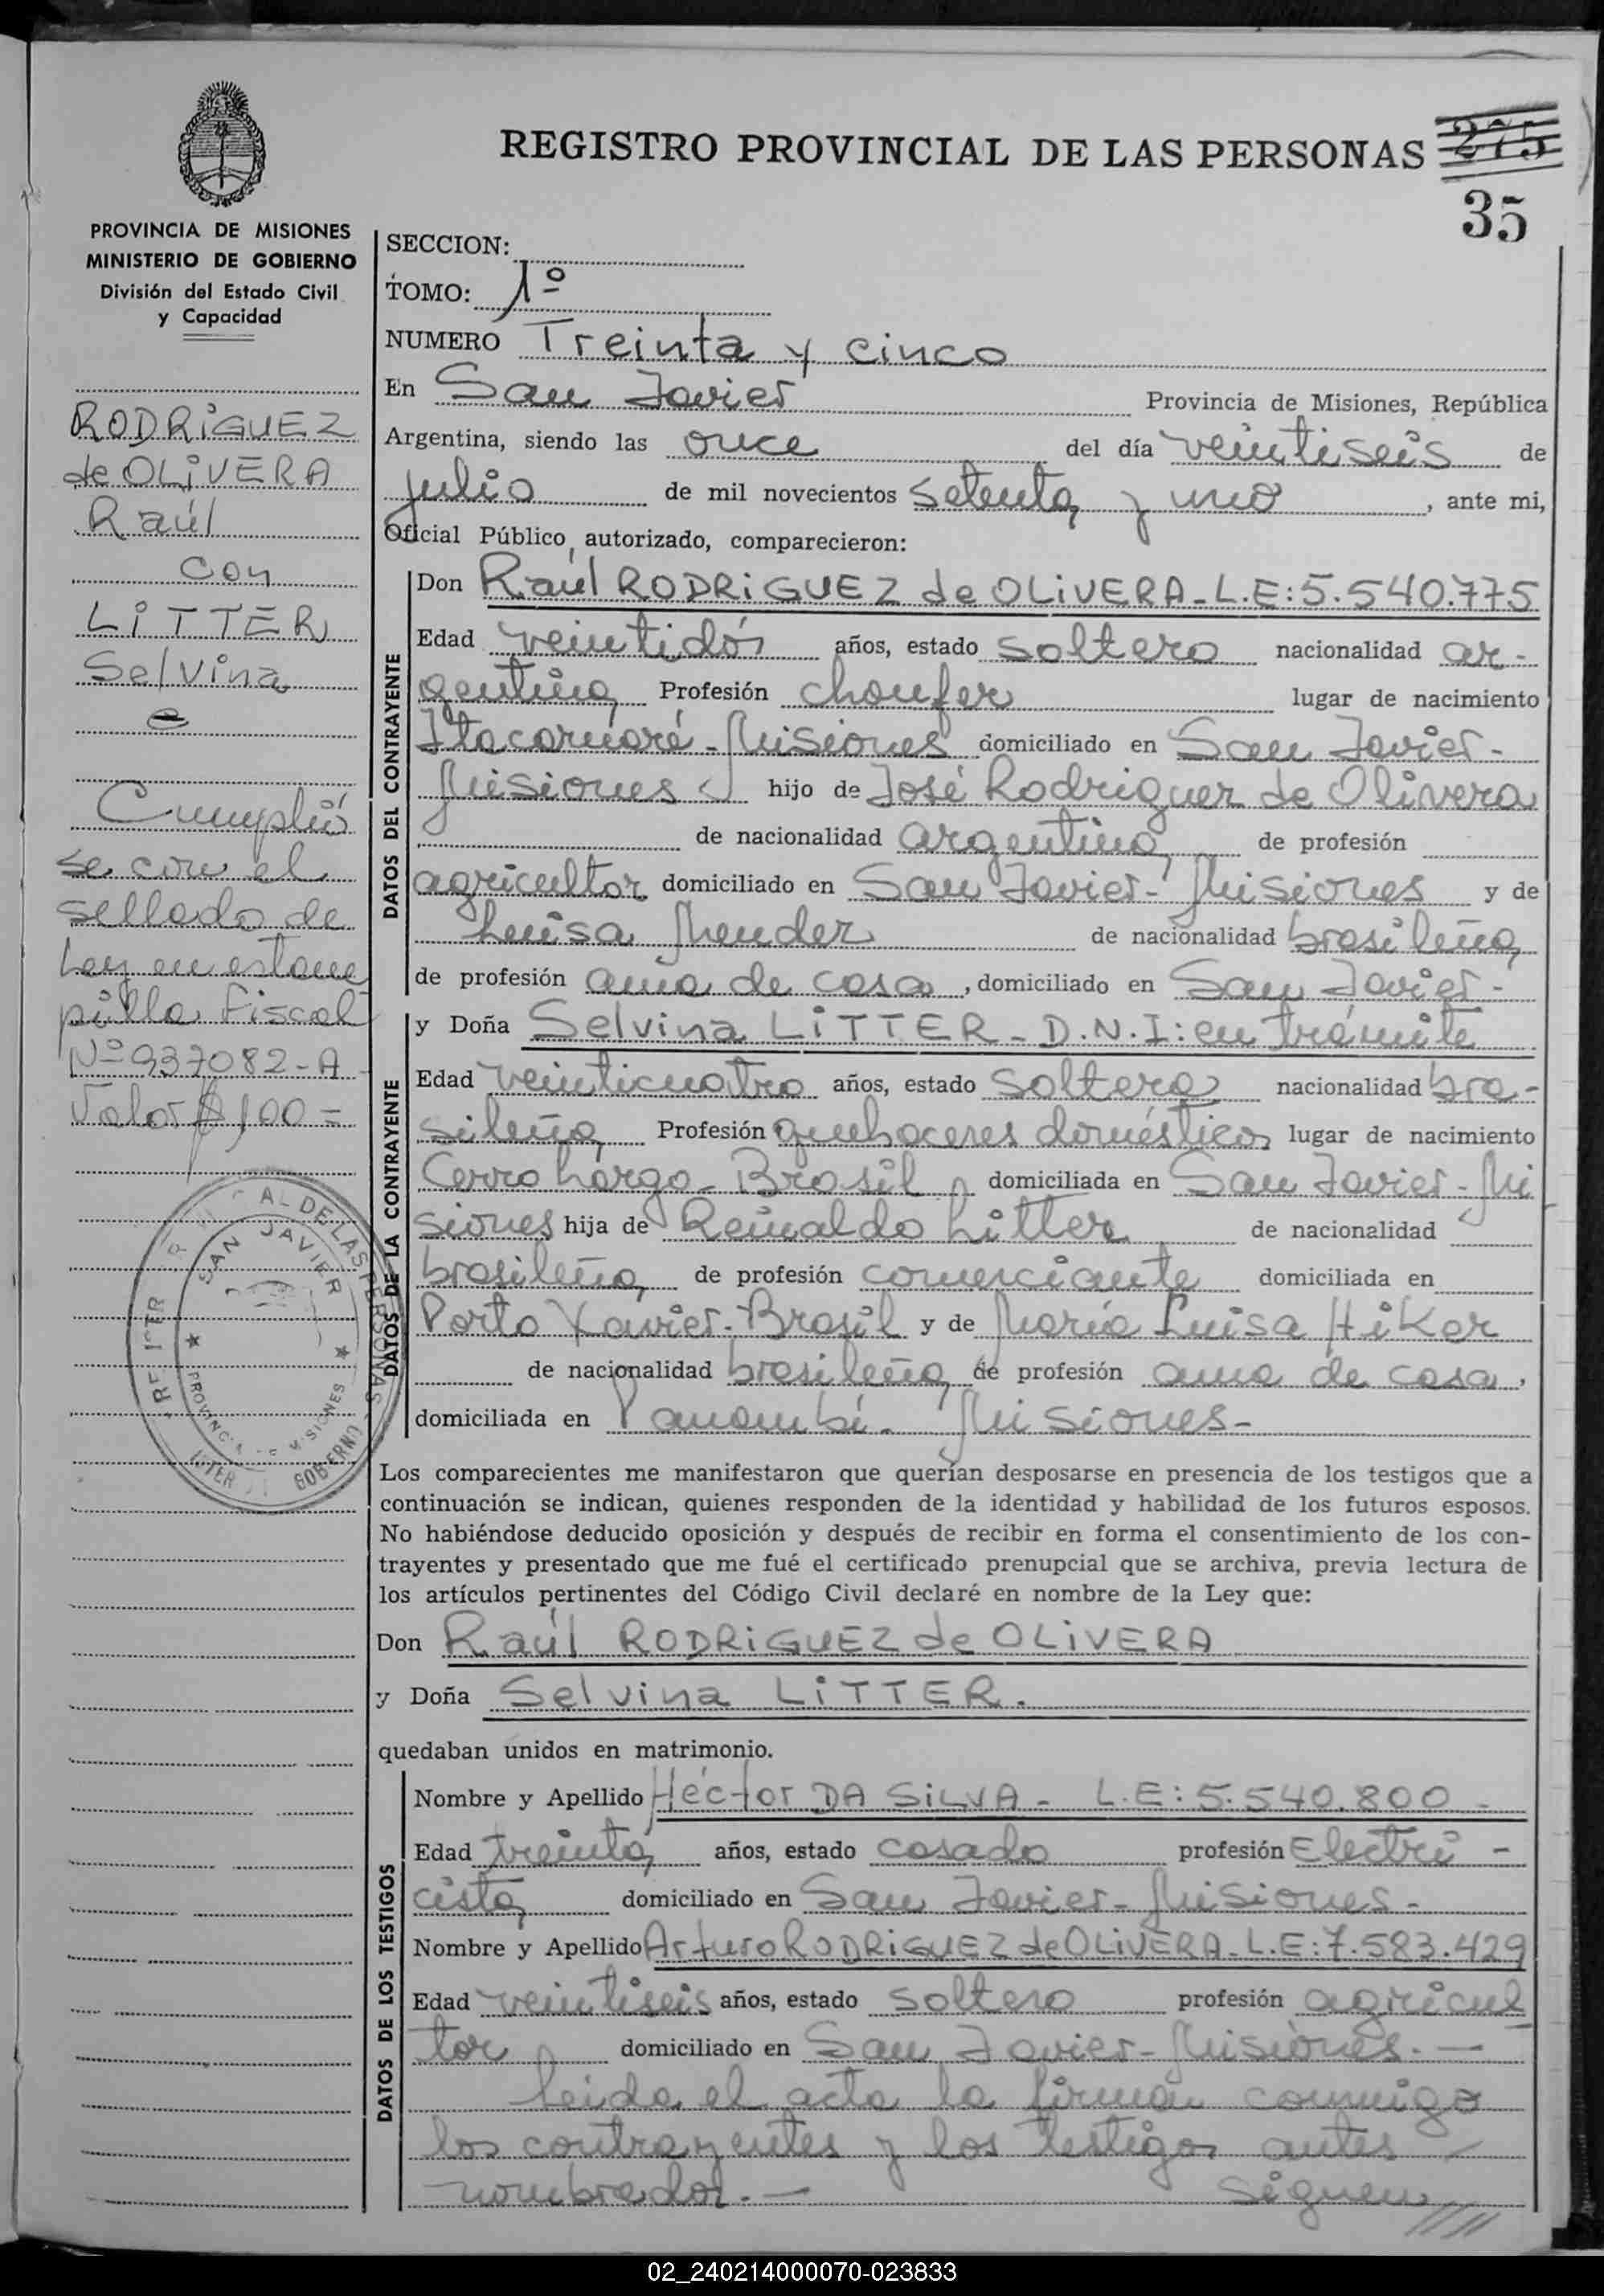 REGISTRO PROVINCIAL DE LAS PERSONAS 275
35
PROVINCIA DE MISIONES
MINISTERIO DE GOBIERNO
División del Estado Civil
y Capacidad
RODRiGUEZ
de OLiVERA
Raúl
con
LiTTER
Selvina
Cumplió
se con el
sellado de
Ley en estam
pilla Fiscal
Nº 937082-A
Valor $ 1,00=
SAN JAVIER
PROVINCIA DE MISIONES
SECCION:
TOMO: 1º
NUMERO Treinta y cinco
En San Javier Provincia de Misiones, República
Argentina, siendo las once del día veintiseis de
julio de mil novecientos setenta y uno, ante mi,
Oficial Público autorizado, comparecieron:
DATOS DEL CONTRAYENTE
Don Raúl RODRiGUEZ de OLiVERA - L.E: 5.540.775
Edad veintidós años, estado soltero nacionalidad ar-
gentina Profesión choufer lugar de nacimiento
Itacaruaré - Misiones domiciliado en San Javier-
Misiones hijo de José Rodriguez de Olivera
de nacionalidad argentina de profesión
agricultor domiciliado en San Javier - Misiones y de
Luisa Mender de nacionalidad brasileña
de profesión ama de casa, domiciliado en San Javier-
DATOS DE LA CONTRAYENTE
y Doña Selvina LiTTER - D.N.I: en trámite
Edad veinticuatro años, estado soltera nacionalidad bra-
sileña Profesión quehaceres domésticos lugar de nacimiento
Cerro Largo - Brasil domiciliada en San Javier - Mi
siones hija de Reinaldo Litter de nacionalidad
brasileña de profesión comerciante domiciliada en
Porto Xavier - Brasil y de María Luisa Hiker
de nacionalidad brasileña de profesión ama de casa,
domiciliada en Panambí - Misiones-
Los comparecientes me manifestaron que querían desposarse en presencia de los testigos que a
continuación se indican, quienes responden de la identidad y habilidad de los futuros esposos.
No habiéndose deducido oposición y después de recibir en forma el consentimiento de los con-
trayentes y presentado que me fué el certificado prenupcial que se archiva, previa lectura de
los artículos pertinentes del Código Civil declaré en nombre de la Ley que:
Don Raúl RODRiGUEZ de OLiVERA
y Doña Selvina LiTTER.
quedaban unidos en matrimonio.
DATOS DE LOS TESTIGOS
Nombre y Apellido Héctor DA SiLVA - L.E: 5.540.800 -
Edad treinta años, estado casado profesión Electri-
cista domiciliado en San Javier - Misiones -
Nombre y Apellido Arturo RODRiGUEZ de OLiVERA - L.E: 7.583.429
Edad veintiseis años, estado soltero profesión agricul
tor domiciliado en San Javier - Misiones. -
Leida el acta la firman conmigo
los contrayentes y los testigos antes
nombrados. - Siguen ////
02_240214000070-023833